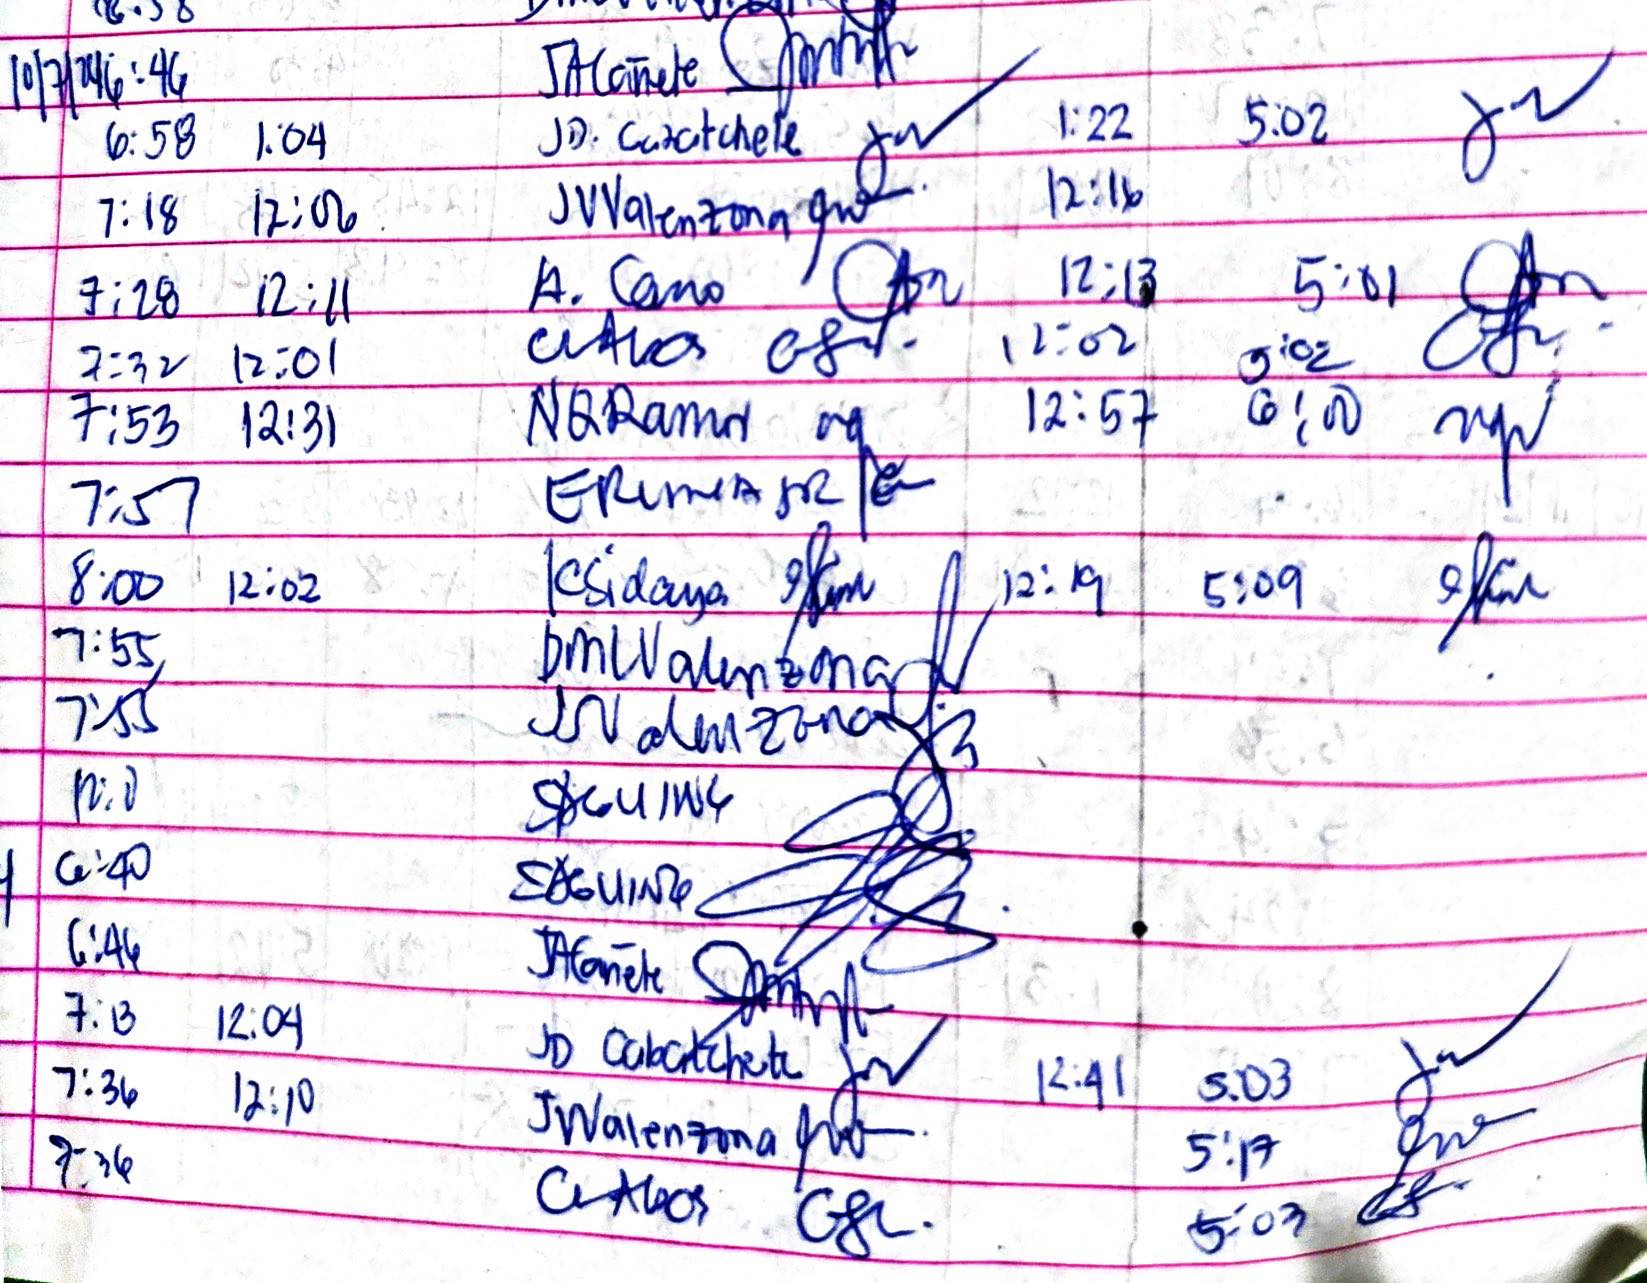 10/7/24 6:46 JACañete
6:58 1:04 JD. Cabatchete 1:22 5:02
7:18 12:06 JVValenzona 12:16
7:28 12:11 A. Cano 12:13 5:01
7:32 12:01 12:02 5:02
7:53 12:31 NQRamos 12:57 6:00
7:57
8:00 12:02 KSidaya 12:19 5:09
7:55 DMLValenzona
7:55 JSValenzona
SAGUING
6:40 SAGUING
6:46 JACañete
7:13 12:04 JD Cabatchete 12:41 5:03
7:36 12:10 JVValenzona 5:17
7:36 5:03